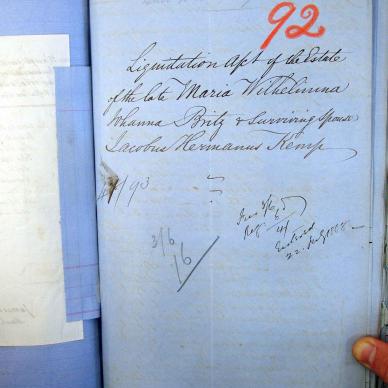 92
Liquidation Apt of the Estate
of the late Maria Wilhelmina
Johanna Britz & Surviving Spouse
Jacobus Hermanus Kemp
/93
3/6
/6
22